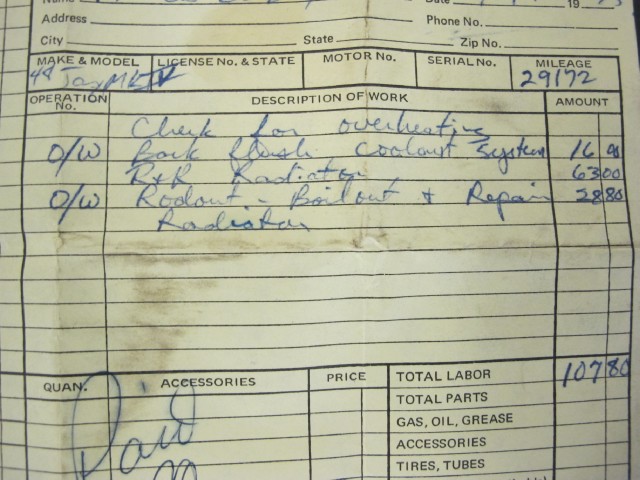 Name Date 19
Address Phone No.
City State Zip No.
MAKE & MODEL LICENSE No. & STATE MOTOR No. SERIAL No. MILEAGE
48 Jag MK IV 29172
OPERATION No. DESCRIPTION OF WORK AMOUNT
Check for overheating
O/W Back flush coolant system 16 00
R+R Radiator 63 00
O/W Rodout - Boilout & Repair 28 80
Radiator
QUAN. ACCESSORIES PRICE TOTAL LABOR 107 80
TOTAL PARTS
GAS, OIL, GREASE
ACCESSORIES
TIRES, TUBES
Paid